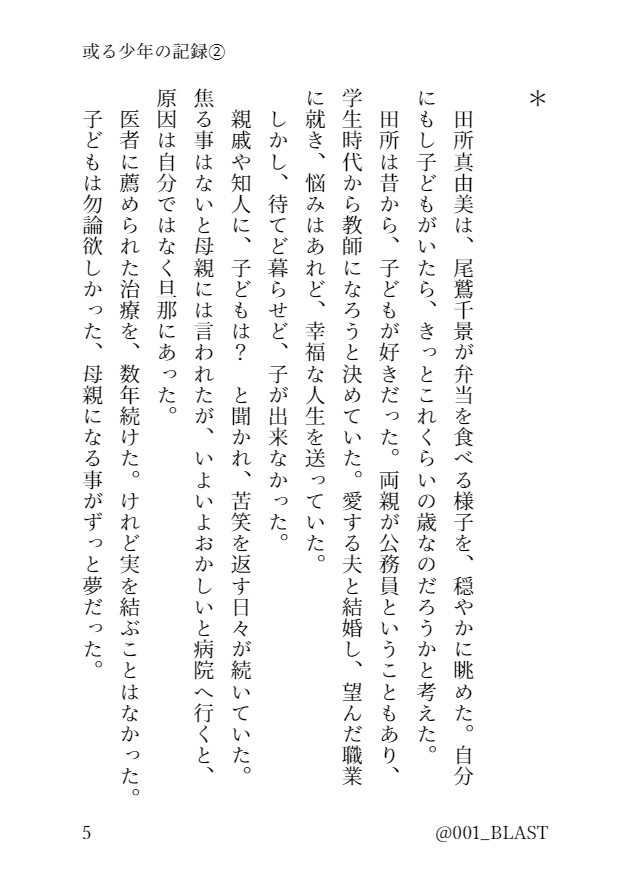 或る少年の記録②
＊
田所真由美は、尾鷲千景が弁当を食べる様子を、穏やかに眺めた。自分
にもし子どもがいたら、きっとこれくらいの歳なのだろうかと考えた。
田所は昔から、子どもが好きだった。両親が公務員ということもあり、
学生時代から教師になろうと決めていた。愛する夫と結婚し、望んだ職業
に就き、悩みはあれど、幸福な人生を送っていた。
しかし、待てど暮らせど、子が出来なかった。
親戚や知人に、子どもは？　と聞かれ、苦笑を返す日々が続いていた。
焦る事はないと母親には言われたが、いよいよおかしいと病院へ行くと、
原因は自分ではなく旦那にあった。
医者に薦められた治療を、数年続けた。けれど実を結ぶことはなかった。
子どもは勿論欲しかった、母親になる事がずっと夢だった。
5
@001_BLAST